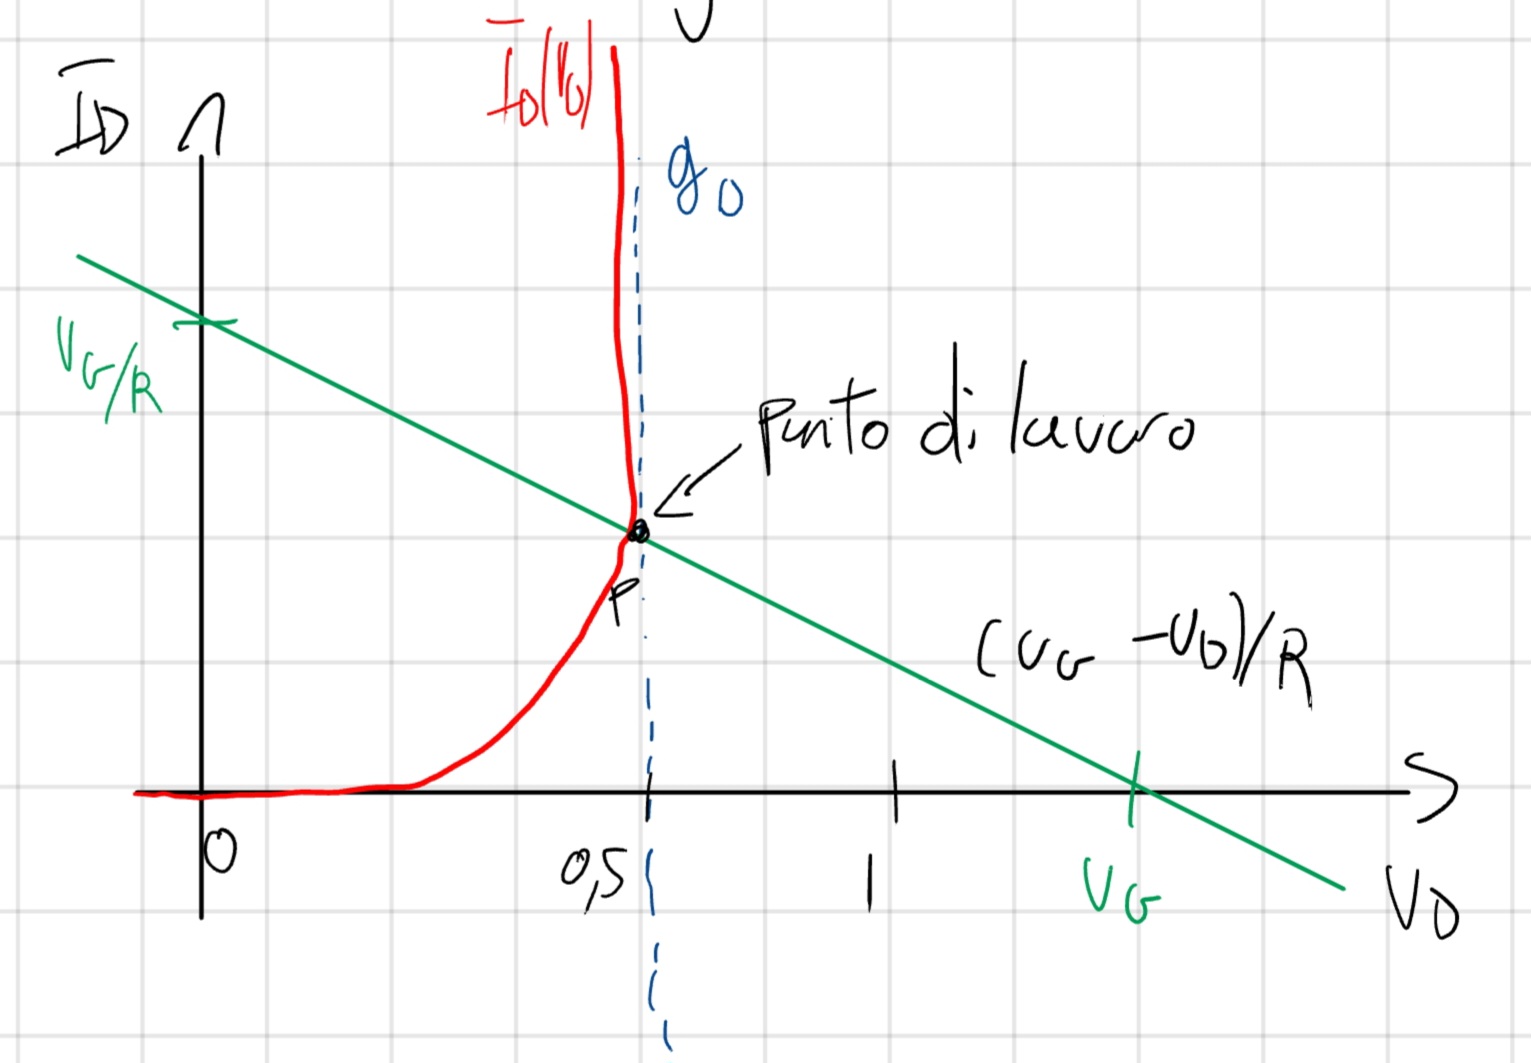 I_D(V_D)
I_D
g_D
V_G/R
punto di lavoro
P
(V_G - V_D)/R
0
0,5
1
V_G
V_D